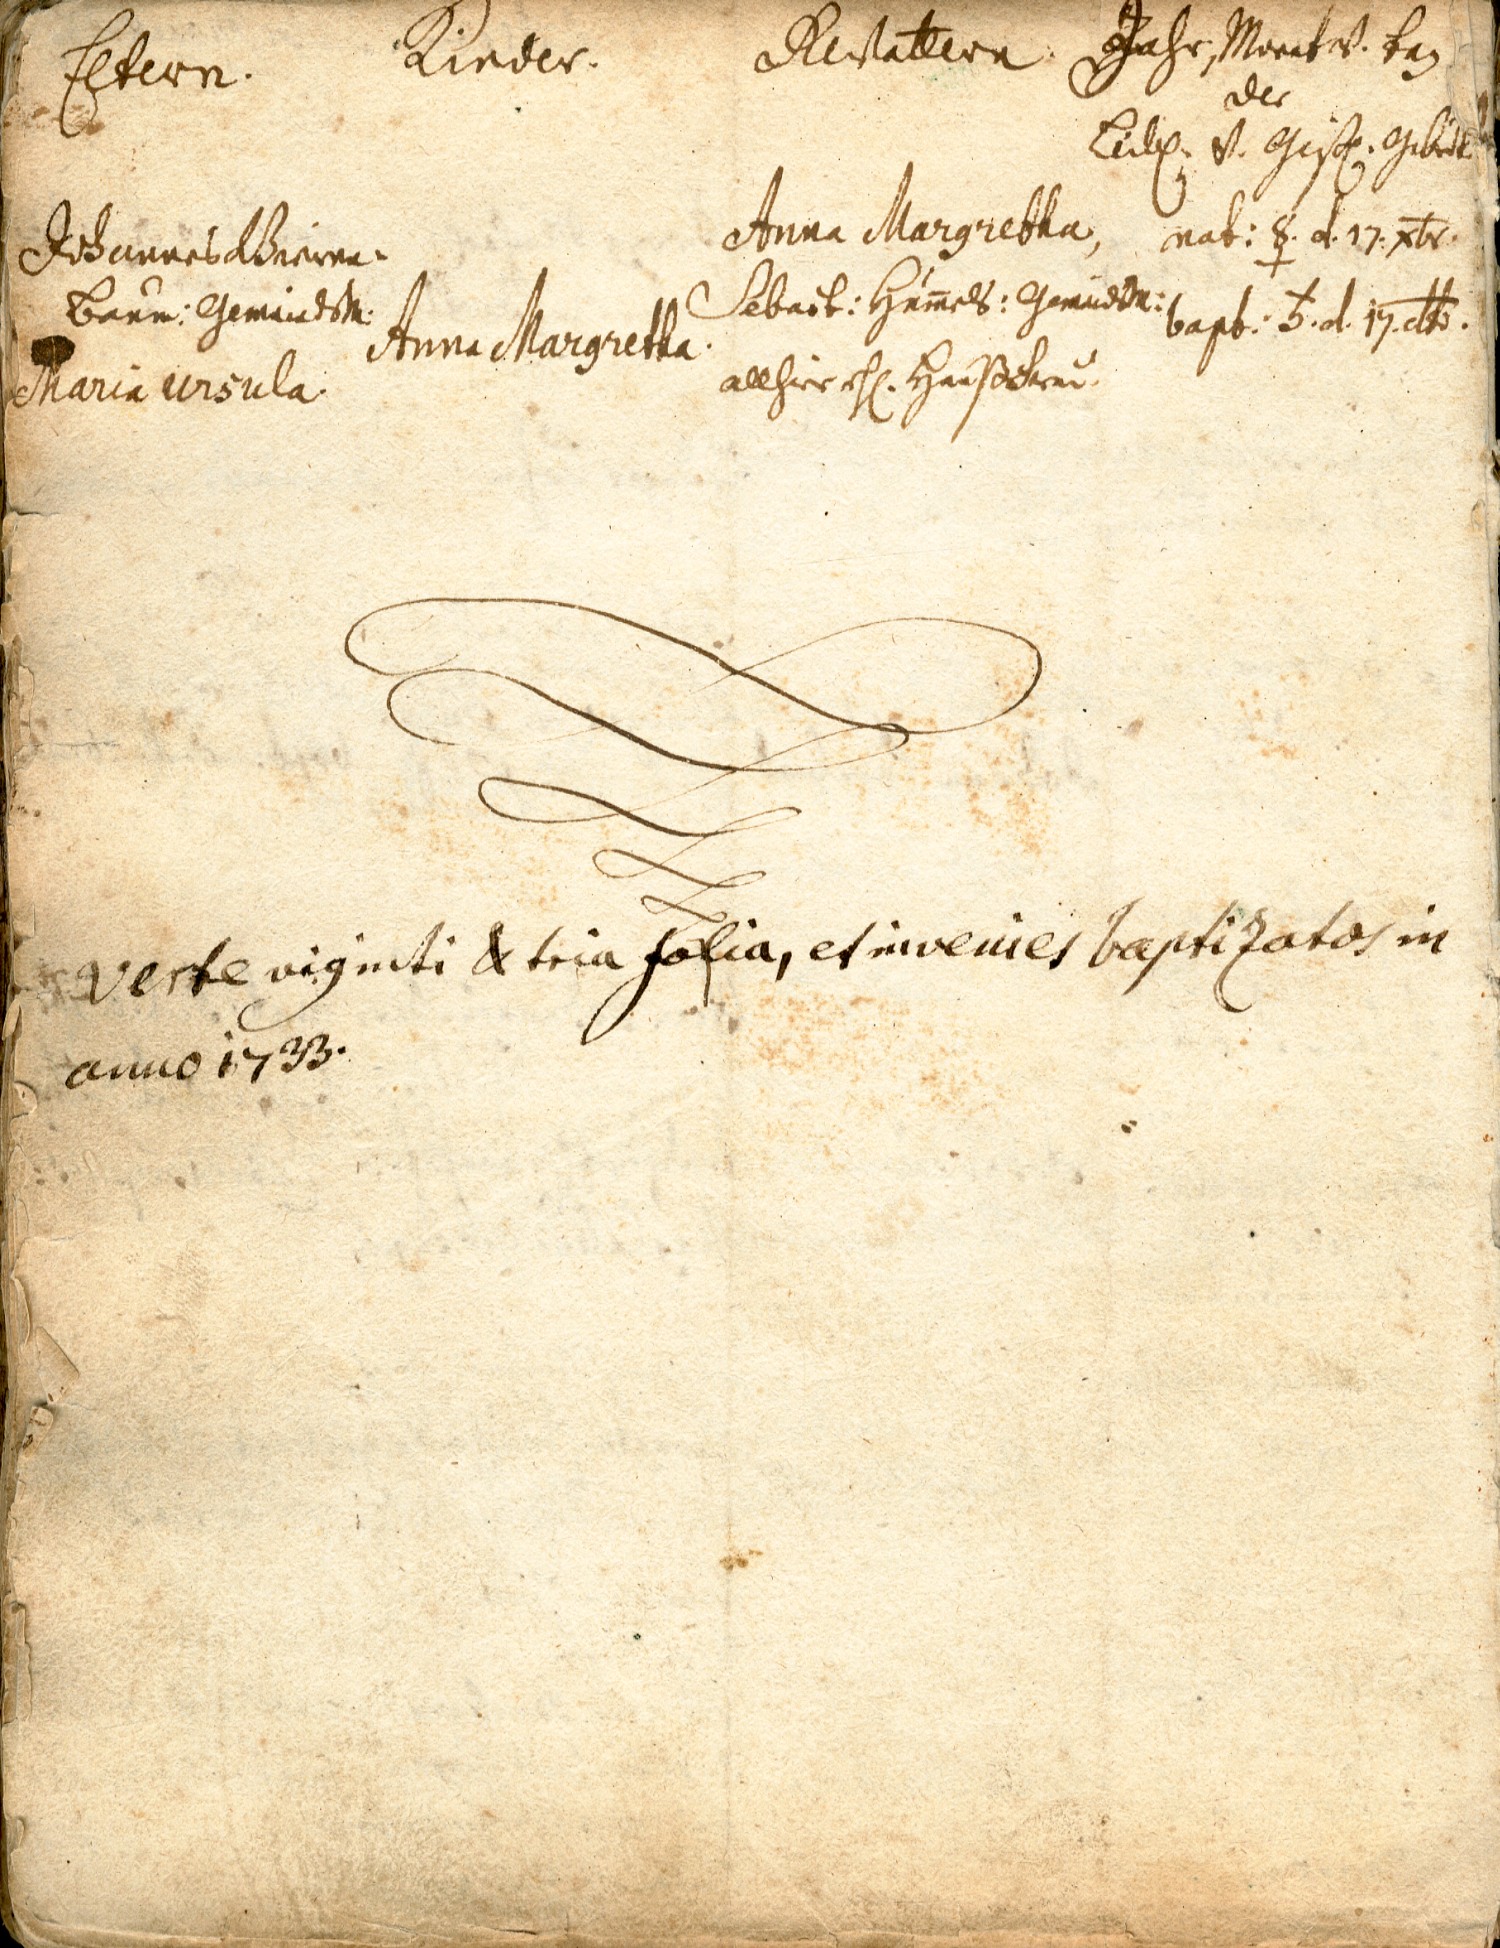 Eltern. Kinder. Gevattern. Jahr, Monat u. tag
der
Leibl. u. Geistl. Geburt.
Johannes Bieren-
baum: Gemeindsm:
Maria Ursula.
Anna Margretha.
Anna Margretha,
Sebast: Hummels: Gemeindsm:
allhier ehl. Haußfrau.
nat: ♀. d. 17. xbr.
bapt: ♄. d. 17. dtto.
Verte viginti & tria folia, et invenies baptizatos in
anno 1733.